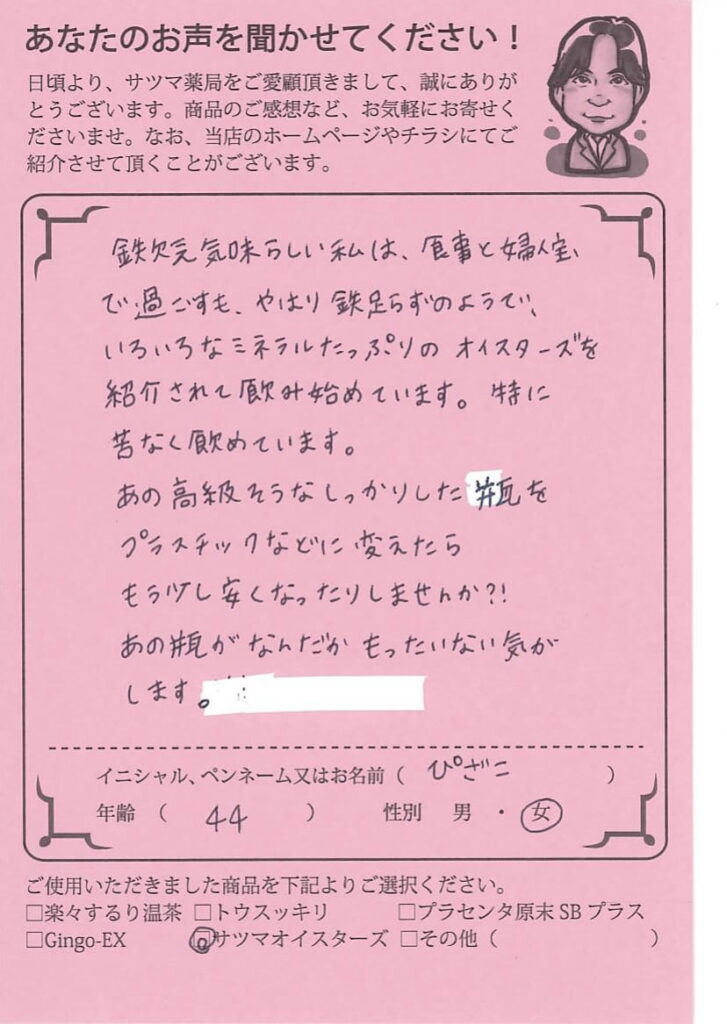 あなたのお声を聞かせてください！
日頃より、サツマ薬局をご愛顧頂きまして、誠にありが
とうございます。商品のご感想など、お気軽にお寄せく
ださいませ。なお、当店のホームページやチラシにてご
紹介させて頂くことがございます。
鉄欠乏気味らしい私は、食事と婦人宝、
で過ごすも、やはり鉄足らずのようで、
いろいろなミネラルたっぷりのオイスターズを
紹介されて飲み始めています。特に
苦なく飲めています。
あの高級そうなしっかりした瓶を
プラスチックなどに変えたら
もう少し安くなったりしませんか?!
あの瓶がなんだかもったいない気が
します。
イニシャル、ペンネーム又はお名前（ ぴざこ ）
年齢 （ 44 ） 性別 男 ・ 女
ご使用いただきました商品を下記よりご選択ください。
□楽々するり温茶 □トウスッキリ □プラセンタ原末SBプラス
□Gingo-EX □サツマオイスターズ □その他（ ）